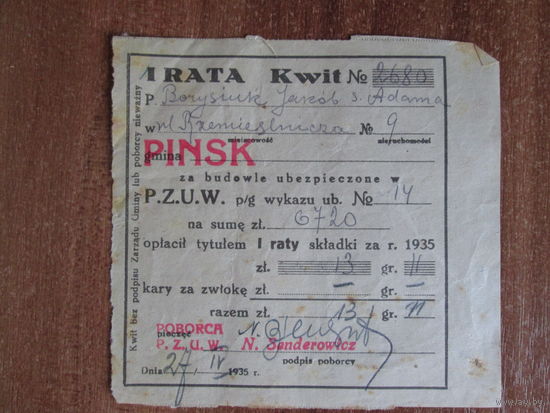 I RATA Kwit № 2680
P. Borysiuk Jakób s. Adama
w ul Rzemieślnicza № 9
miejscowość nieruchomości
gmina PINSK
za budowle ubezpieczone w
P.Z.U.W. p/g wykazu ub. № 14
na sumę zł. 6720
opłacił tytułem I raty składki za r. 1935
zł. 13 gr. 11
kary za zwłokę zł. — gr. —
razem zł. 13 gr. 11
POBORCA
pieczęć
P. Z. U. W. N. Senderowicz
podpis poborcy
Dnia 27/IV 1935 r.
Kwit bez podpisu Zarządu Gminy lub poborcy nieważny